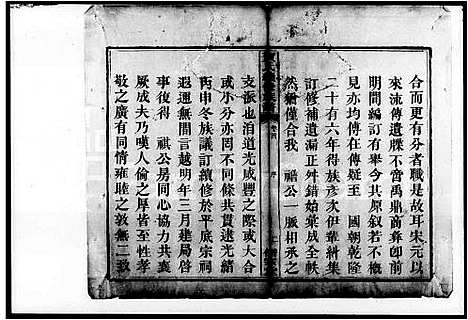 合而更有分者職是故耳宋元以
來流傳遺牒不啻禹鼎商彝卽前
明間編訂有舉今其原叙若不槪
見亦均傳在傳疑至 國朝乾隆
二十有六年得族彥次伊華緝考
訂修補遺漏正舛錯始彙成全帙
然猶僅合我 祺公一脈相承之
卷首 序
支張也洎道光咸豐之際或大合
或小分亦罔不同條共貫逮光緒
丙申冬族議訂續修於平底宗祠
遐邇無間言越明年三月建局啓
事復得 祺公房同心協力共襄
厥成夫乃嘆人倫之厚皆至性孝
敬之廣有同情雍睦之敦無二致